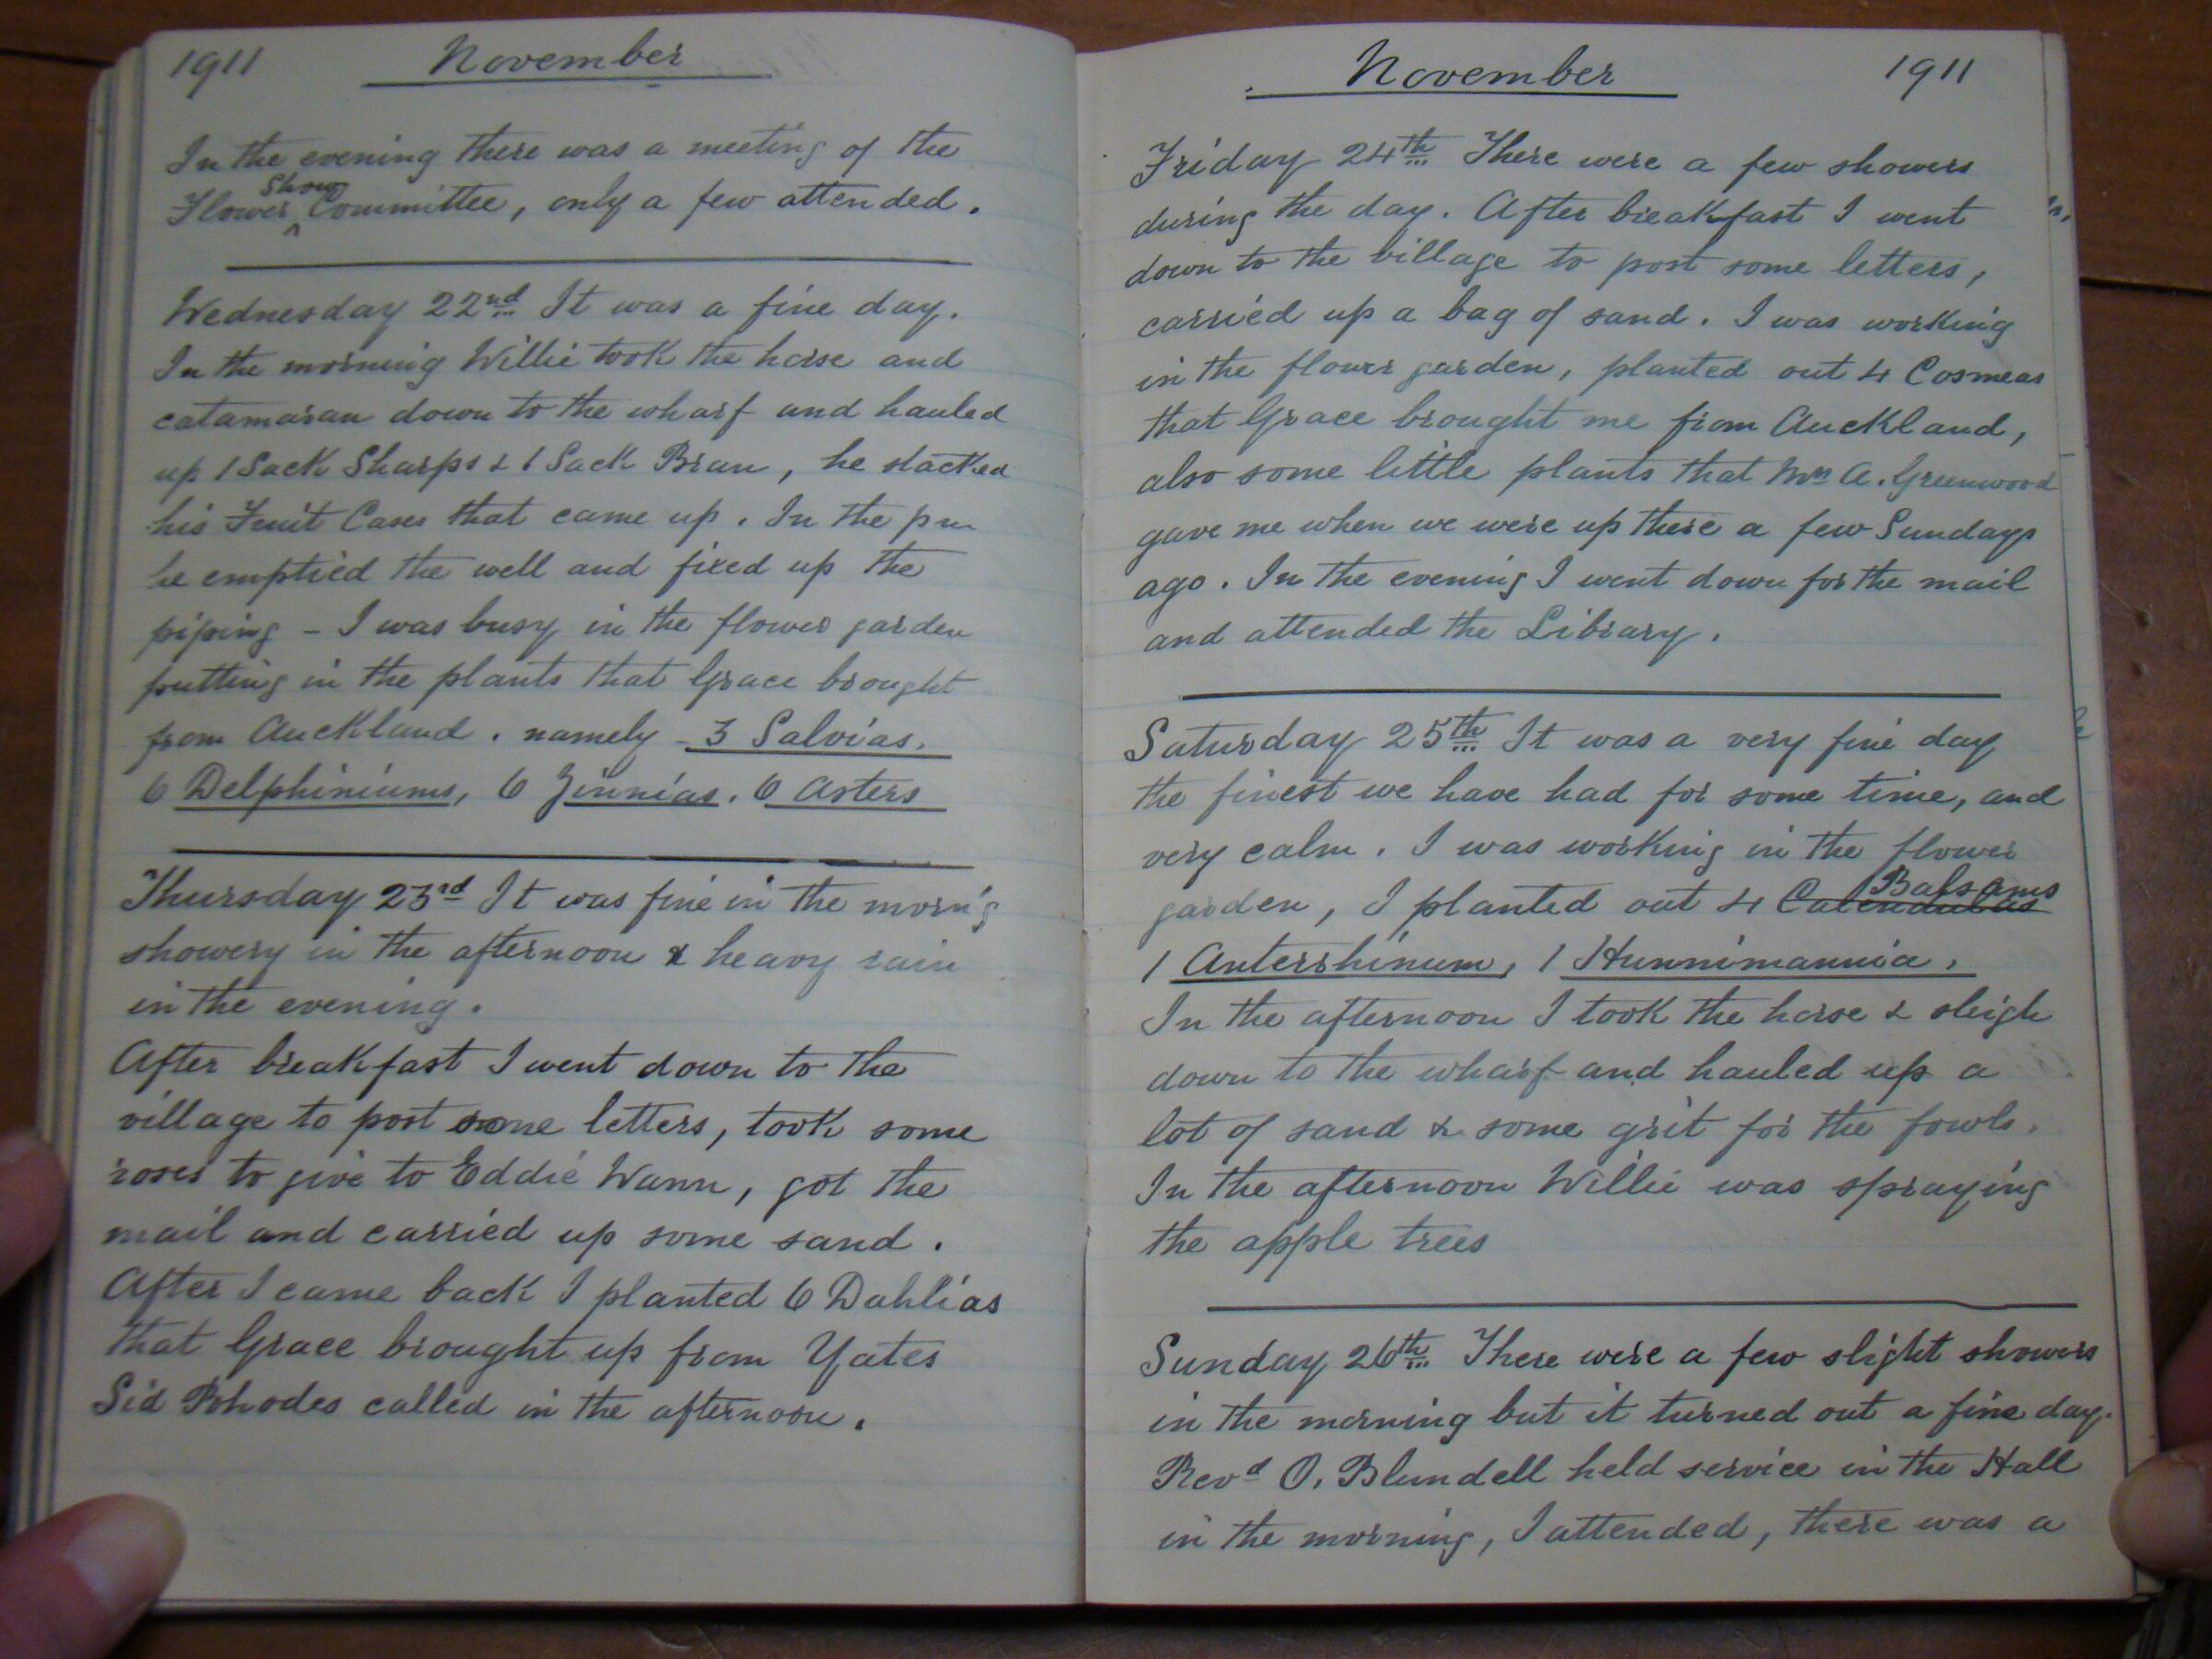 1911 November
In the evening there was a meeting of the
Flower Show Committee, only a few attended.
Wednesday 22nd It was a fine day.
In the morning Willie took the horse and
catamaran down to the wharf and hauled
up 1 Sack Sharps & 1 Sack Bran, he stacked
his Fruit Cases that came up. In the pm
he emptied the well and fixed up the
piping - I was busy in the flower garden
putting in the plants that Grace brought
from Auckland. namely - 3 Salvias.
6 Delphiniums, 6 Zinnias. 6 Asters
Thursday 23rd It was fine in the morng
showery in the afternoon & heavy rain
in the evening.
After breakfast I went down to the
village to post some letters, took some
roses to give to Eddie Wann, got the
mail and carried up some sand.
After I came back I planted 6 Dahlias
that Grace brought up from Yates
Sid Rhodes called in the afternoon.
November 1911
Friday 24th There were a few showers
during the day. After breakfast I went
down to the village to post some letters,
carried up a bag of sand. I was working
in the flower garden, planted out 4 Cosmeas
that Grace brought me from Auckland,
also some little plants that Mrs A. Greenwood
gave me when we were up there a few Sundays
ago. In the evening I went down for the mail
and attended the Library.
Saturday 25th It was a very fine day
the finest we have had for some time, and
very calm. I was working in the flower
garden, I planted out 4 Calendulas Balsams
1 Anterrhinum, 1 Hunnimannia.
In the afternoon I took the horse & sleigh
down to the wharf and hauled up a
lot of sand & some grit for the fowls.
In the afternoon Willie was spraying
the apple trees
Sunday 26th There were a few slight showers
in the morning but it turned out a fine day.
Revd O. Blundell held service in the Hall
in the morning, I attended, there was a